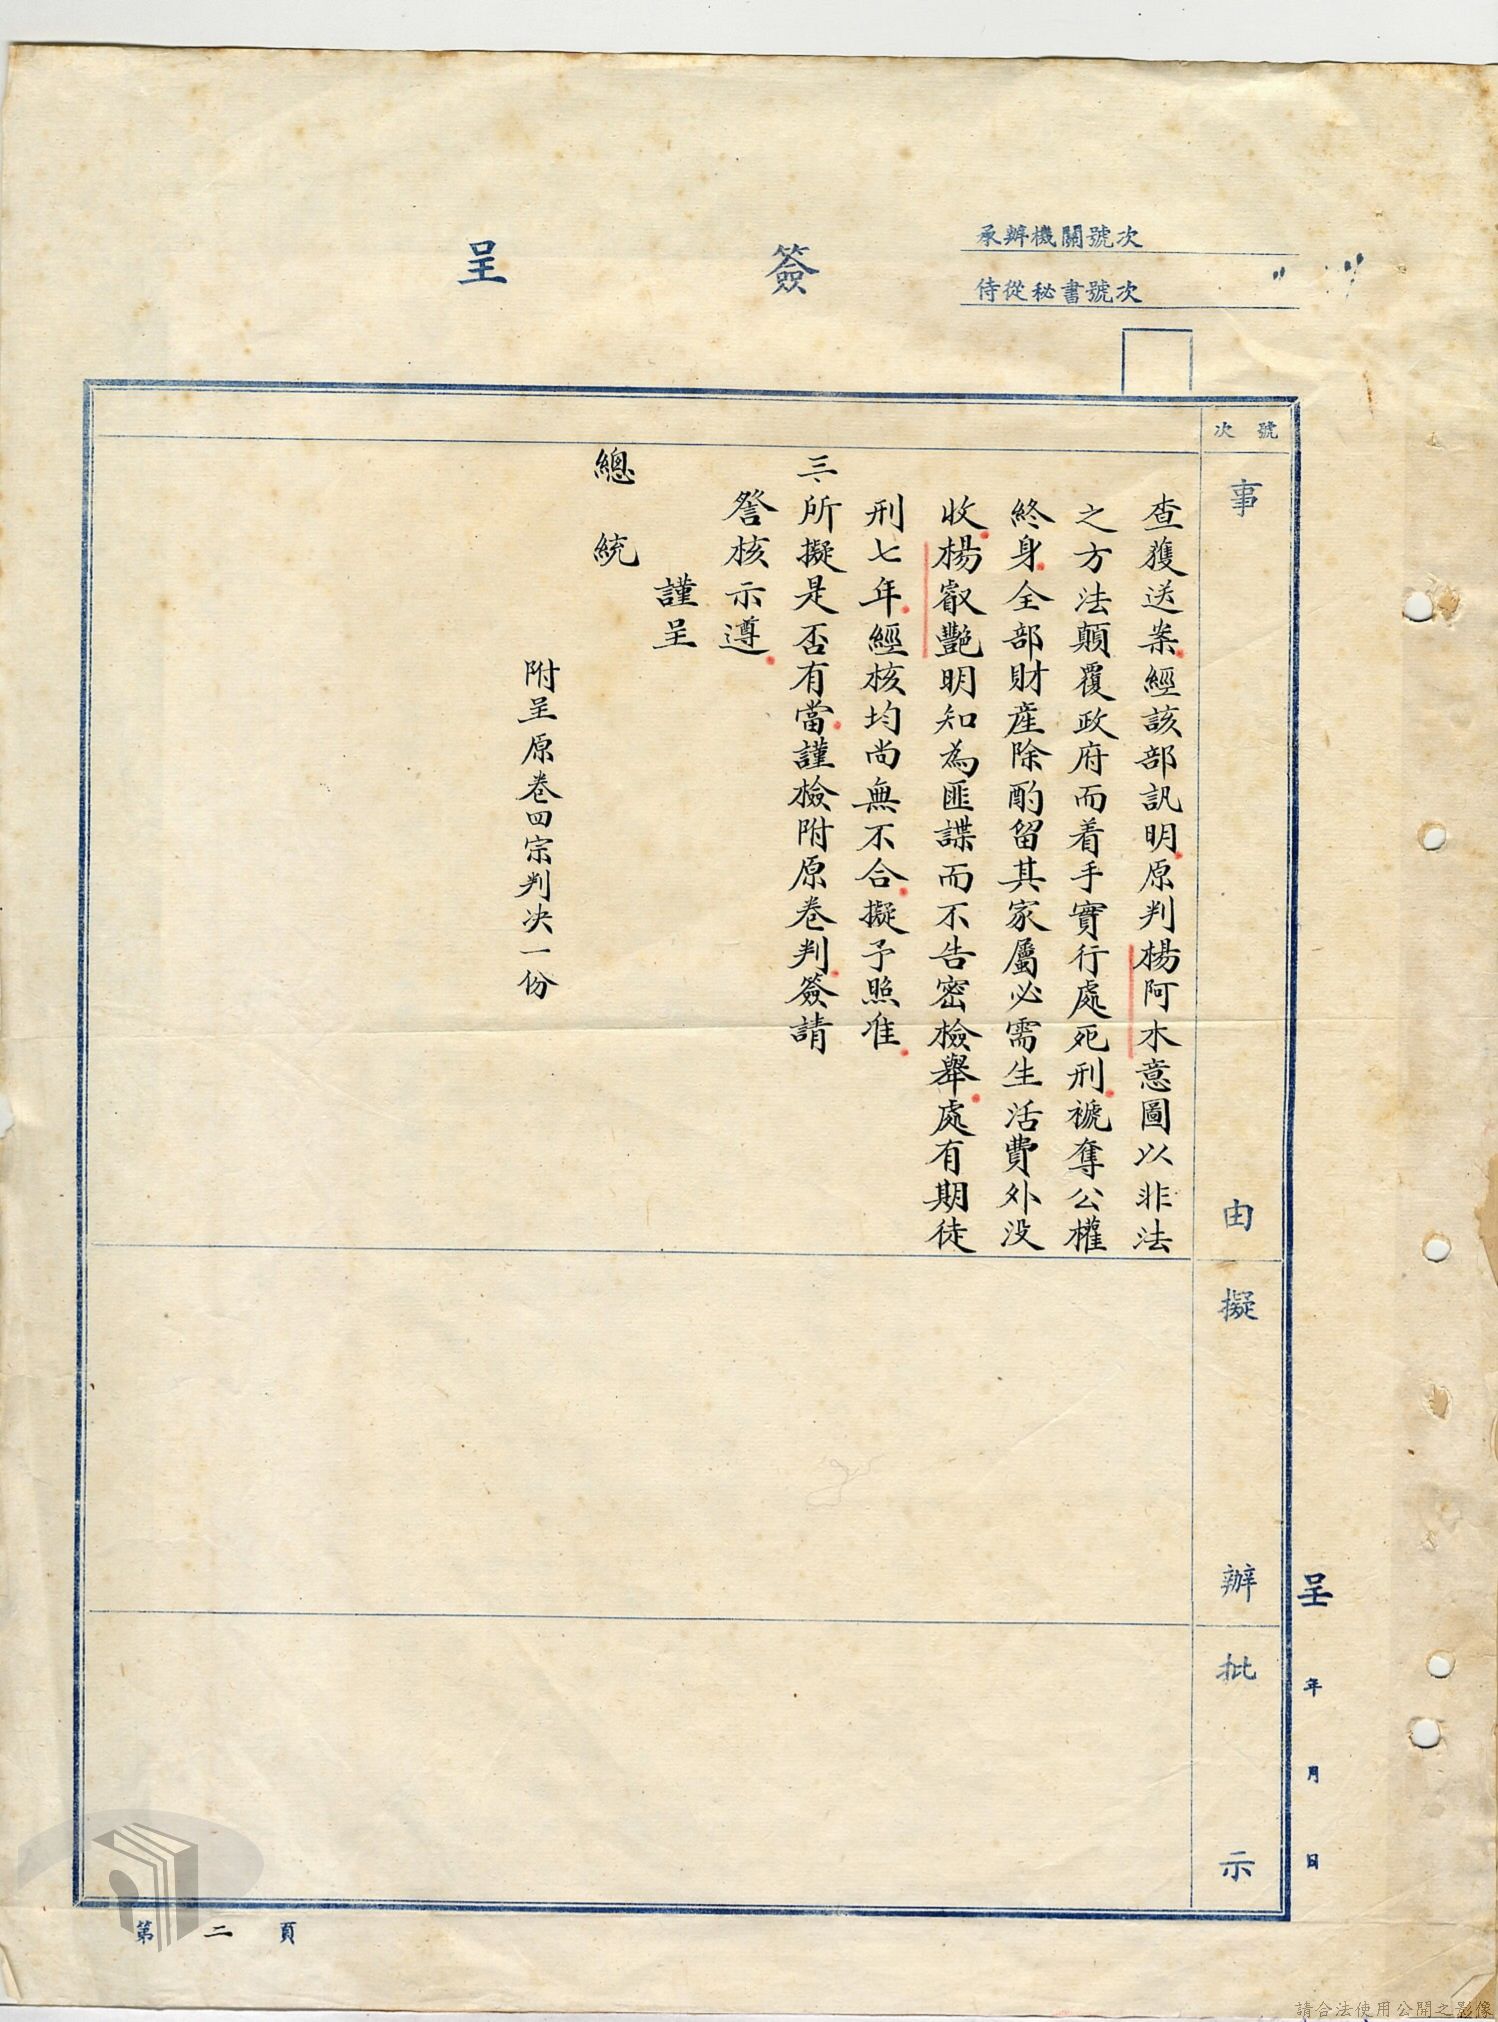 簽呈
承辦機關號次
侍從秘書號次 〃 〃
號次
事由
擬辦
批示
查獲送案經該部訊明原判楊阿木意圖以非法
之方法顛覆政府而着手實行處死刑褫奪公權
終身全部財產除酌留其家屬必需生活費外没
收楊叡艷明知為匪諜而不告密檢舉處有期徒
刑七年經核均尚無不合擬予照准
三、所擬是否有當謹檢附原卷判簽請
詧核示遵
謹呈
總統
附呈原卷四宗判决一份
呈 年 月 日
第二頁
請合法使用公開之影像